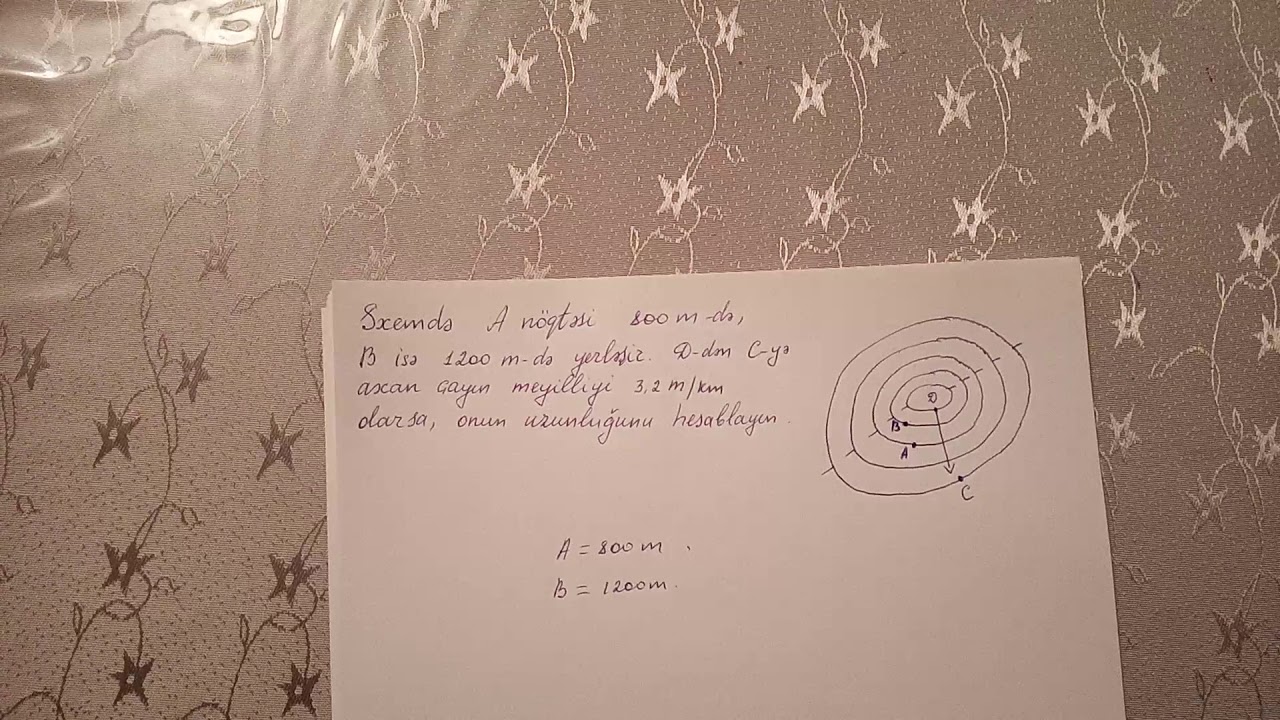 Sxemdə A nöqtəsi 800 m-də,
B isə 1200 m-də yerləşir. D-dən C-yə
axan çayın meyilliyi 3,2 m/km
olarsa, onun uzunluğunu hesablayın.
D
B
A
C
A = 800 m.
B = 1200 m.